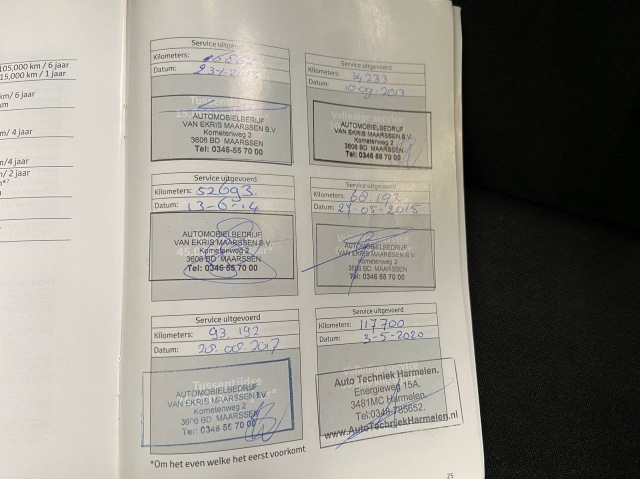 105,000 km / 6 jaar
15,000 km / 1 jaar
km/ 6 jaar
km
km/ 4 jaar
km/4 jaar
m/ 2 jaar
Service uitgevoerd
Kilometers:
Datum:
Tussentijdse
AUTOMOBIELBEDRIJF
VAN EKRIS MAARSSEN B.V.
Kometenweg 2
3606 BD MAARSSEN
Tel: 0346-55 70 00
Service uitgevoerd
Kilometers: 34233
Datum: 10-09-2013
Volledige service
AUTOMOBIELBEDRIJF
VAN EKRIS MAARSSEN B.V.
Kometenweg 2
3606 BD MAARSSEN
Tel: 0346-55 70 00
Service uitgevoerd
Kilometers: 52693
Datum: 13-6-14
AUTOMOBIELBEDRIJF
VAN EKRIS MAARSSEN B.V.
Kometenweg 2
3606 BD MAARSSEN
Tel: 0346 55 70 00
Service uitgevoerd
Kilometers: 68 192
Datum: 27-05-2015
AUTOMOBIELBEDRIJF
VAN EKRIS MAARSSEN B.V.
Kometenweg 2
3606 BD MAARSSEN
Tel: 0346 55 70 00
Service uitgevoerd
Kilometers: 93 192
Datum: 28-08-2017
Tussentijdse
AUTOMOBIELBEDRIJF
VAN EKRIS MAARSSEN B.V.
Kometenweg 2
3606 BD MAARSSEN
Tel: 0346 55 70 00
Service uitgevoerd
Kilometers: 117700
Datum: 3-5-2020
Auto Techniek Harmelen.
Energieweg 15A.
3481MC Harmelen.
Tel:0348-785652.
www.AutoTechniekHarmelen.nl
*Om het even welke het eerst voorkomt
25